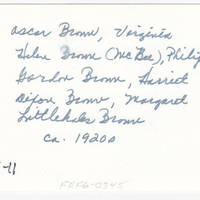 Oscar Brown, Virginia
Helen Brown (McBee), Philip
Gordon Brown, Harriet
Dixon Brown, Margaret
Littlehales Brown
ca. 1920s
-11
FEF6-0345